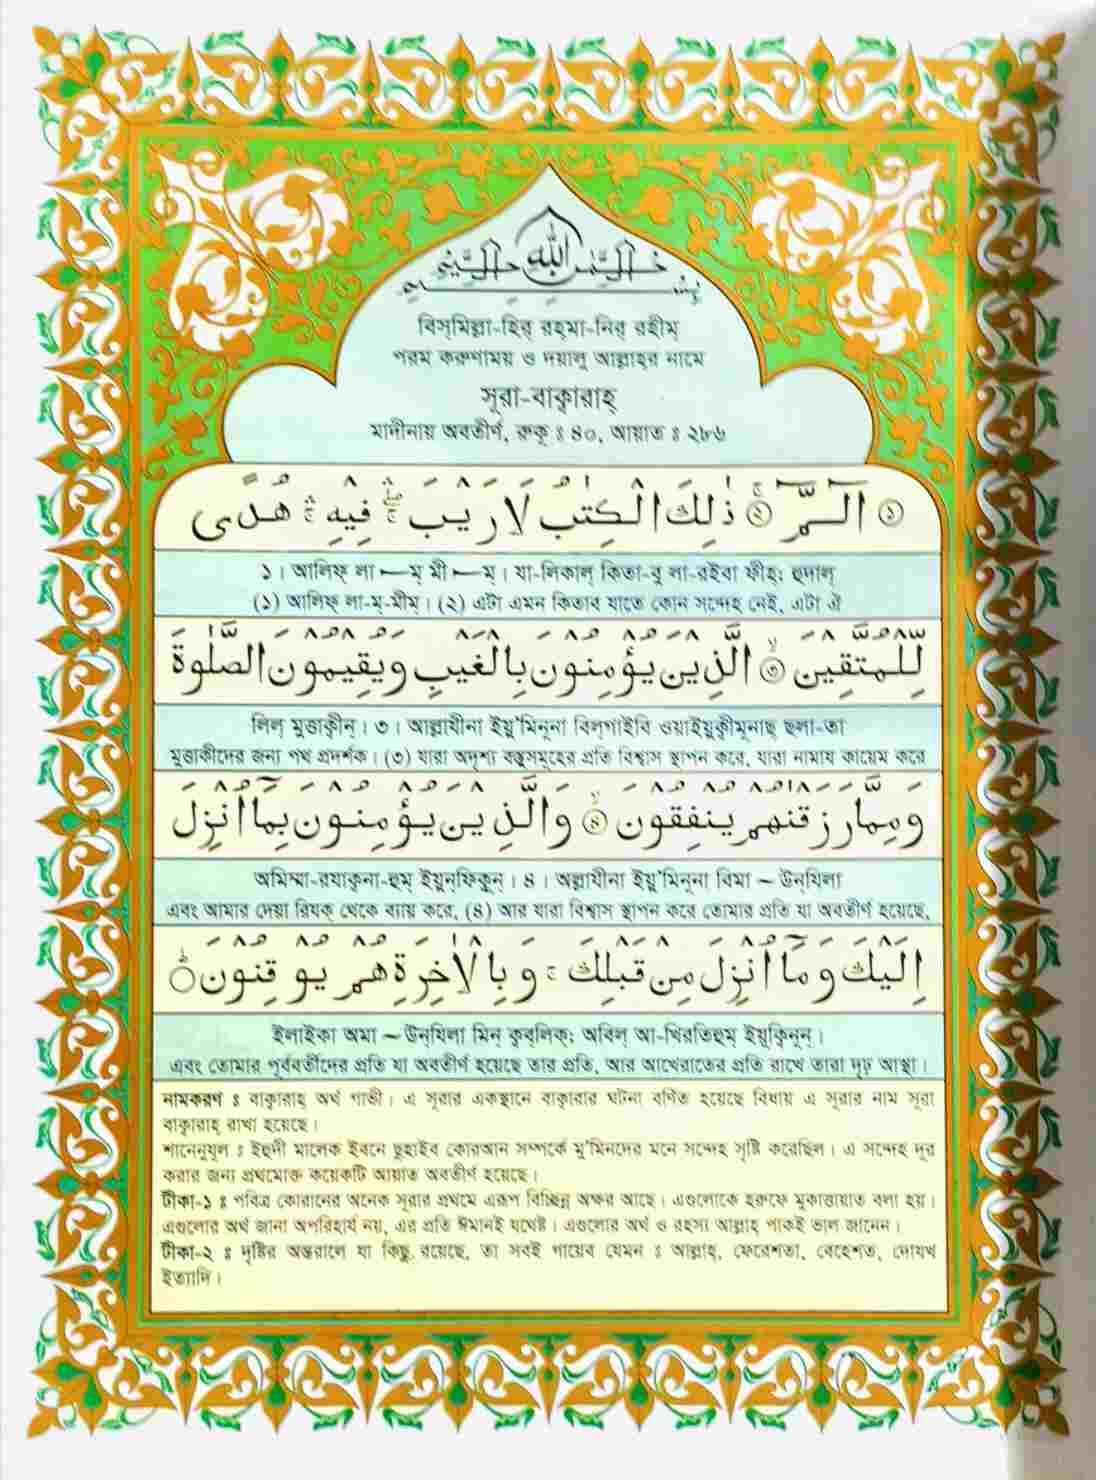 بِسْمِ اللهِ الرَّحْمٰنِ الرَّحِيْمِ
বিস্‌মিল্লা-হির্ রহ্‌মা-নির্ রহীম্
পরম করুণাময় ও দয়ালু আল্লাহর নামে
সূরা-বাক্বারাহ্
মাদীনায় অবতীর্ণ, রুকূ ঃ ৪০, আয়াত ঃ ২৮৬
۝১ الٓـمّٓ ۚ ۝২ ذٰلِكَ الْكِتٰبُ لَا رَيْبَ ۛۖۚ فِيْهِ ۛۚ هُدًى
১। আলিফ্ লা—ম্ মী—ম্। যা-লিকাল্ কিতা-বু লা-রইবা ফীহ্; হুদাল্
(১) আলিফ্ লা-ম্-মীম্। (২) এটা এমন কিতাব যাতে কোন সন্দেহ নেই, এটা ঐ
لِّلْمُتَّقِيْنَ ۙ۝৩ الَّذِيْنَ يُؤْمِنُوْنَ بِالْغَيْبِ وَيُقِيْمُوْنَ الصَّلٰوةَ
লিল্ মুত্তাক্বীন্। ৩। আল্লাযীনা ইয়ু'মিনূনা বিল্‌গাইবি ওয়াইয়ুক্বীমূনাছ্ ছলা-তা
মুত্তাকীদের জন্য পথ প্রদর্শক। (৩) যারা অদৃশ্য বস্তুসমূহের প্রতি বিশ্বাস স্থাপন করে, যারা নামায কায়েম করে
وَمِمَّا رَزَقْنٰهُمْ يُنْفِقُوْنَ ۙ۝৪ وَالَّذِيْنَ يُؤْمِنُوْنَ بِمَآ اُنْزِلَ
অমিম্মা-রযাক্বনা-হুম্ ইয়ুন্‌ফিকূন্। ৪। অল্লাযীনা ইয়ু'মিনূনা বিমা ~ উন্‌যিলা
এবং আমার দেয়া রিযক্ থেকে ব্যয় করে, (৪) আর যারা বিশ্বাস স্থাপন করে তোমার প্রতি যা অবতীর্ণ হয়েছে,
اِلَيْكَ وَمَآ اُنْزِلَ مِنْ قَبْلِكَ ۚ وَبِالْاٰخِرَةِ هُمْ يُوْقِنُوْنَ ۝
ইলাইকা অমা ~ উন্‌যিলা মিন্ ক্বব্‌লিক্; অবিল্ আ-খিরতিহুম্ ইয়ূক্বিনূন্।
এবং তোমার পূর্ববর্তীদের প্রতি যা অবতীর্ণ হয়েছে তার প্রতি, আর আখেরাতের প্রতি রাখে তারা দৃঢ় আস্থা।
নামকরণ ঃ বাক্বারাহ্ অর্থ গাভী। এ সূরার একস্থানে বাক্বারার ঘটনা বর্ণিত হয়েছে বিধায় এ সূরার নাম সূরা
বাক্বারাহ্ রাখা হয়েছে।
শানেনুযূল ঃ ইহুদী মালেক ইবনে ছুহাইব কোরআন সম্পর্কে মু'মিনদের মনে সন্দেহ সৃষ্টি করেছিল। এ সন্দেহ দূর
করার জন্য প্রথমোক্ত কয়েকটি আয়াত অবতীর্ণ হয়েছে।
টীকা-১ ঃ পবিত্র কোরানের অনেক সূরার প্রথমে এরূপ বিচ্ছিন্ন অক্ষর আছে। এগুলোকে হরুফে মুকাত্তায়াত বলা হয়।
এগুলোর অর্থ জানা অপরিহার্য নয়, এর প্রতি ঈমানই যথেষ্ট। এগুলোর অর্থ ও রহস্য আল্লাহ্ পাকই ভাল জানেন।
টীকা-২ ঃ দৃষ্টির অন্তরালে যা কিছু রয়েছে, তা সবই গায়েব যেমন ঃ আল্লাহ্, ফেরেশতা, বেহেশত, দোযখ
ইত্যাদি।